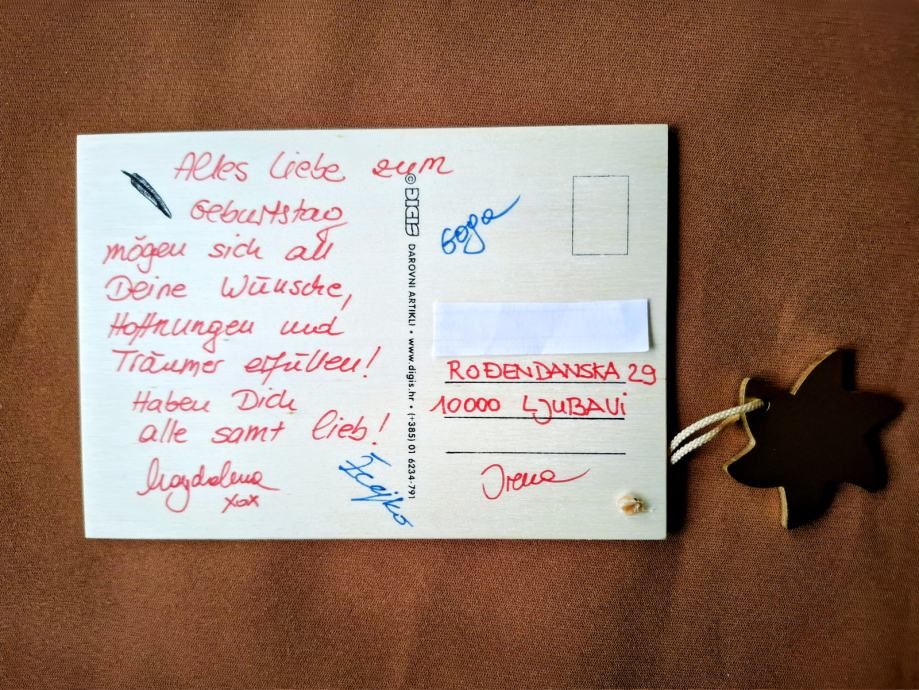 Alles Liebe zum
Geburtstag
mögen sich all
Deine Wünsche,
Hoffnungen und
Träumer erfüllen!
Haben Dich
alle samt lieb!
Magdalena
xox
Željko
© DIGIS DAROVNI ARTIKLI • www.digis.hr • (+385) 01 6234-791
Goga
ROĐENDANSKA 29
10000 LJUBAVi
Irena